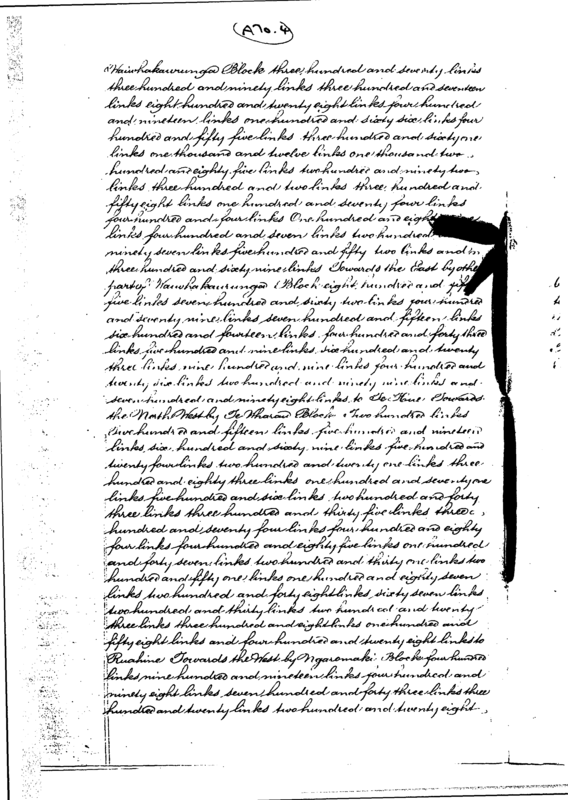 (A No. 4)
Waiwhakaurunga Block three hundred and seventy links
three hundred and ninety links three hundred and seventeen
links eight hundred and twenty eight links four hundred
and nineteen links one hundred and sixty six links four
hundred and fifty five links three hundred and sixty one
links one thousand and twelve links one thousand two
hundred and eighty five links two hundred and ninety two
links three hundred and two links three hundred and
fifty eight links one hundred and seventy four links
four hundred and four links One hundred and eight
links four hundred and seven links two hundred
ninety seven links five hundred and fifty two links and
three hundred and sixty nine links Towards the East by other
part of Waiwhakaurunga Block eight hundred and fifty
five links seven hundred and sixty two links four hundred
and seventy nine links seven hundred and fifteen links
six hundred and fourteen links four hundred and forty three
links five hundred and nine links six hundred and twenty
three links nine hundred and nine links four hundred and
twenty six links two hundred and ninety nine links and
seven hundred and eighty links to Towards
the North West by Te Wharau Block Two hundred links
five hundred and fifteen links five hundred and nineteen
links six hundred and sixty nine links five hundred and
twenty four links two hundred and twenty one links three
hundred and eighty three links one hundred and seventy one
links five hundred and six links two hundred and forty
three links three hundred and thirty five links three
hundred and seventy four links four hundred and eighty
four links four hundred and eighty five links one hundred
and forty seven links two hundred and thirty one links two
hundred and fifty one links one hundred and eighty seven
links two hundred and forty eight links sixty seven links
two hundred and thirty links two hundred and twenty
three links three hundred and eight links one hundred and
fifty eight links and four hundred and twenty eight links to
Ruahine Towards the West by Ngaromaki Block four hundred
links nine hundred and nineteen links four hundred and
ninety eight links seven hundred and forty three links three
hundred and twenty links two hundred and twenty eight